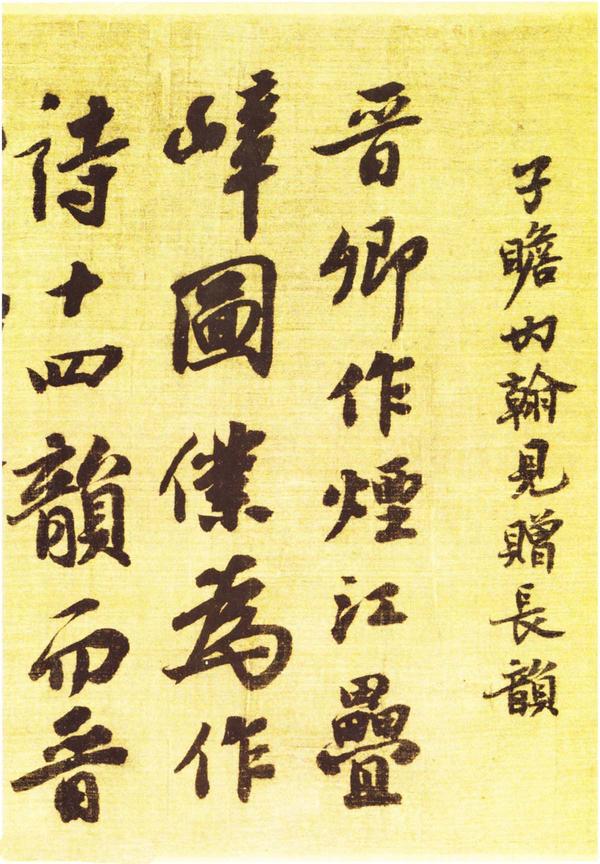 子瞻內翰見贈長韻
晉卿作煙江疊
嶂圖僕為作
詩十四韻而晉